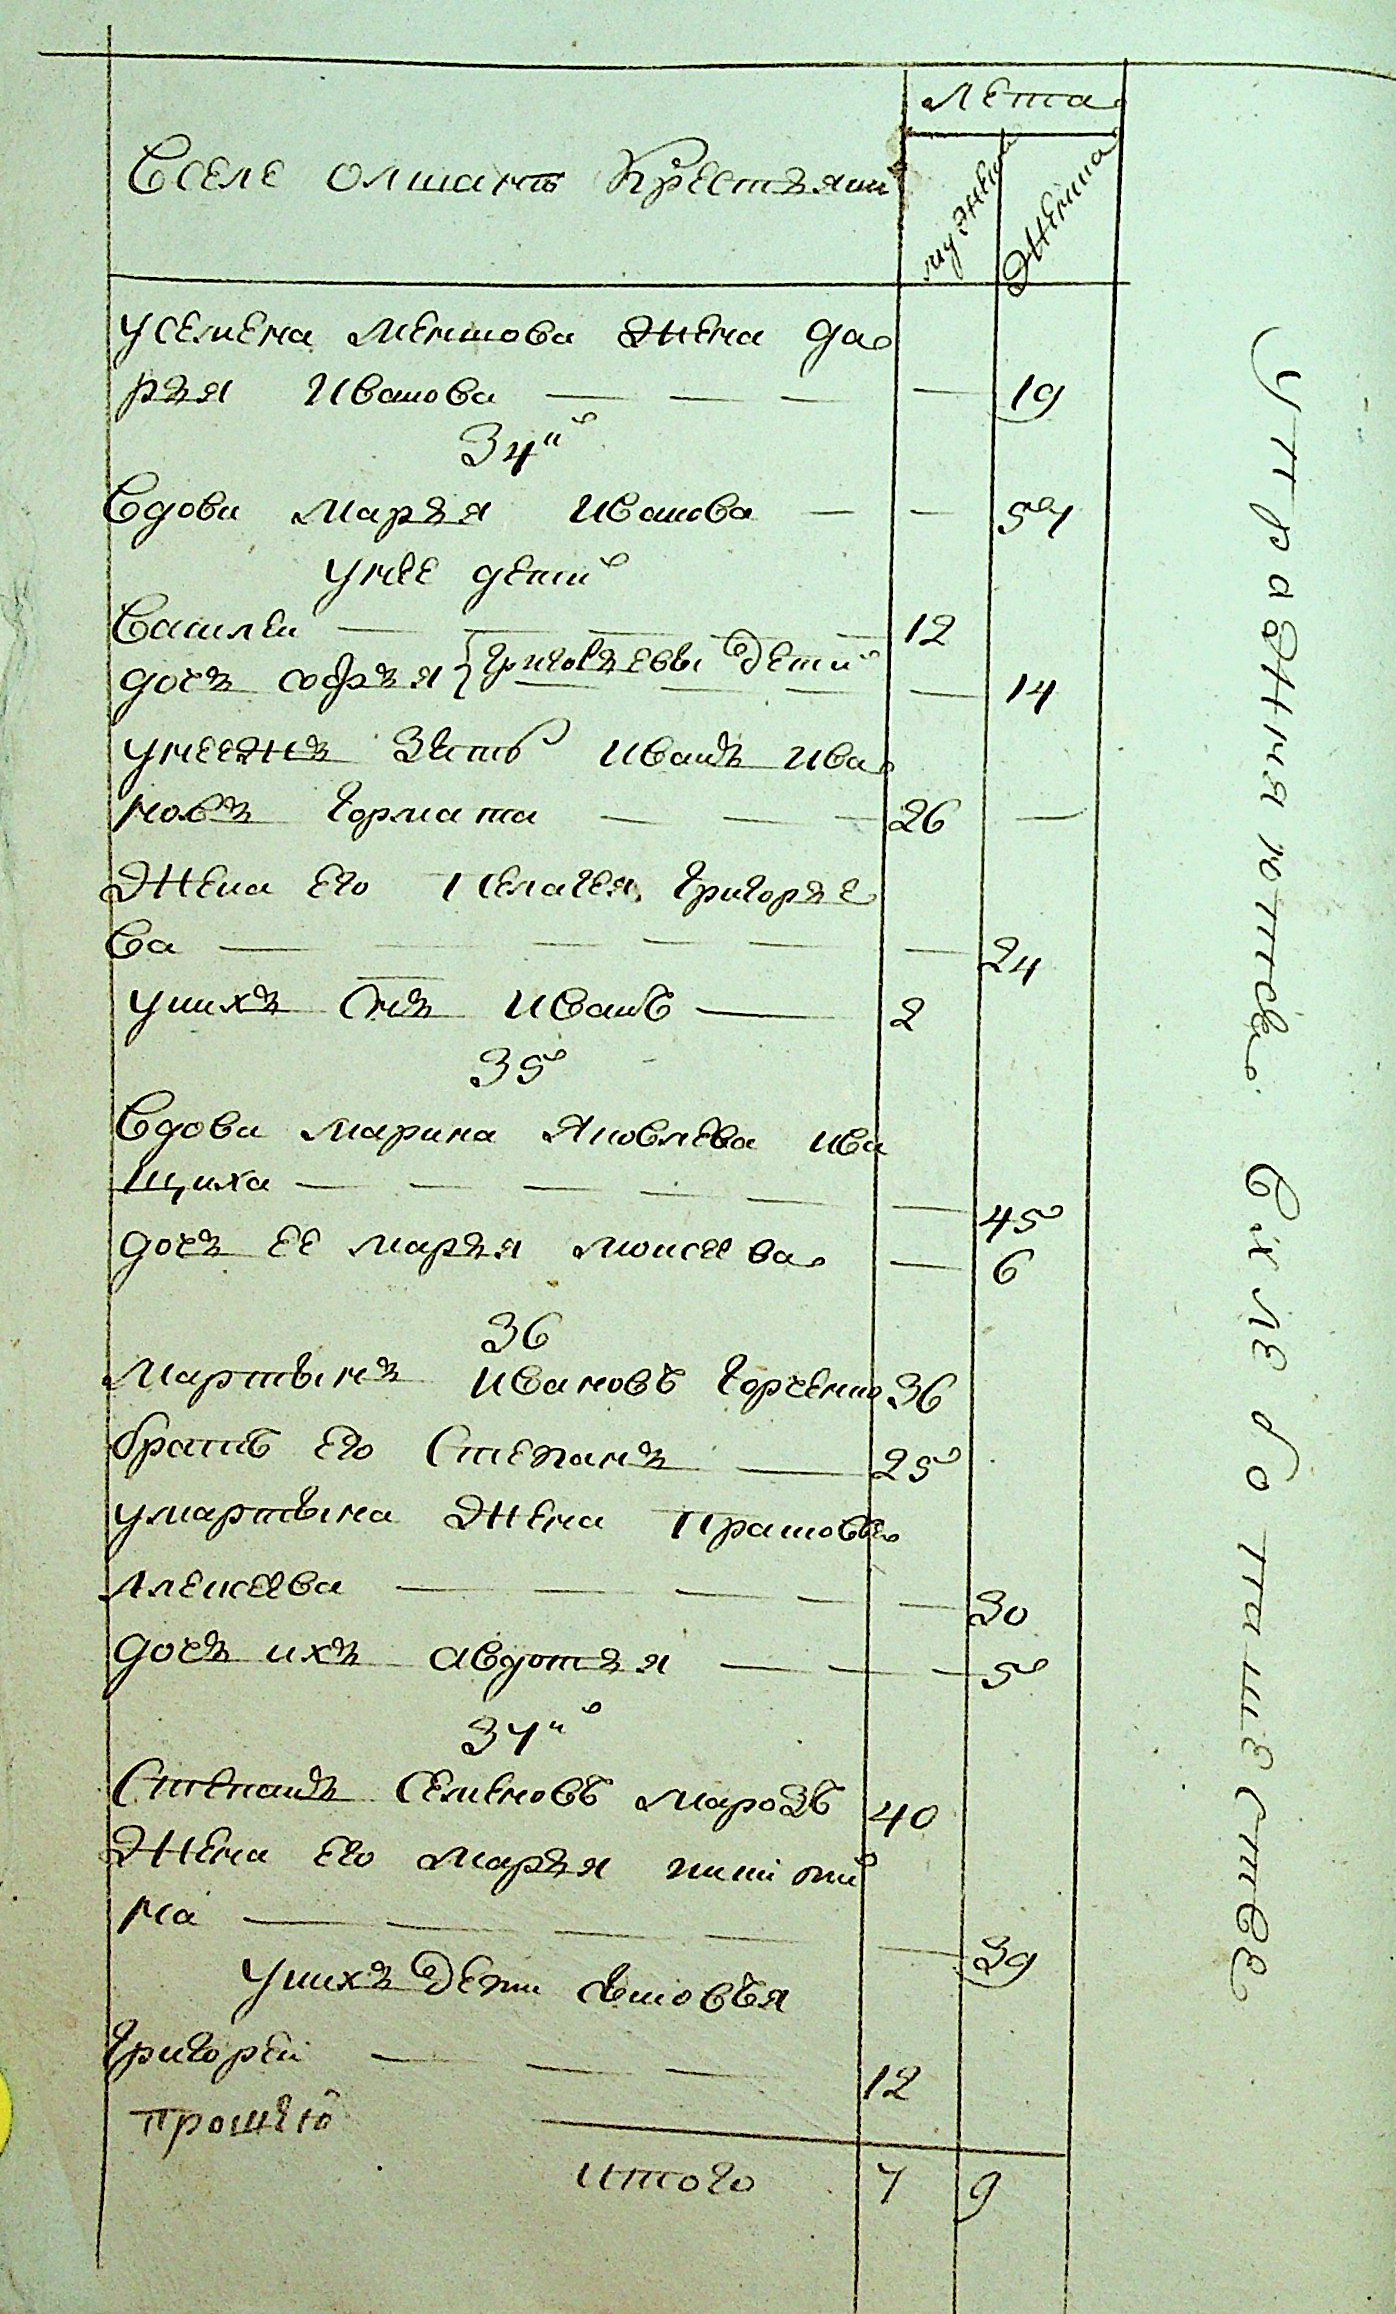 лета
Вселе олшанъ Крестьянъ
мужеска женска
усемена меншова жена да
рья Иванова — — — — 19
34й
Вдова марья иванова — — 54
унее дети
Василеи — — — — 12
дочь софья } григорьевы дети — 14
унееже зять иванъ ива
новъ гормата — — — 26 —
жена его пелагея григорье
ва — — — — — 24
унихъ снъ иванъ — 2
35
Вдова марина яковлева ива
щиха — — — — — — 45
дочь ее марья моисеева — 6
36
мартынъ ивановъ горченко 36
братъ его степанъ — 25
умартына жена прасковья
алексеева — — — — — 30
дочь ихъ авдотья — — — 5
37й
степанъ семеновъ марозъ 40
жена его марья никити
на — — — — — 39
унихъ дети
григореи — — — 12
прошеки
итого 7 9
упражняютсь вхлебопашестве